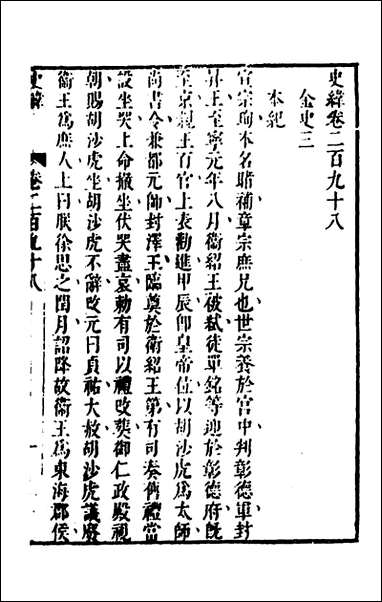 史緯卷二百九十八
金史三
本紀
宣宗珣本名䁂補章宗庶兄也世宗養於宮中判彰德軍封
昇王至寧元年八月衛紹王被弑徒單銘等迎於彰德府旣
至京親王百官上表勸進甲辰卽皇帝位以胡沙虎爲太師
尚書令兼都元帥封澤王臨奠於衛紹王第有司奏舊禮當
設坐哭上命撤坐伏哭盡哀勅有司以禮改葬御仁政殿視
朝賜胡沙虎坐胡沙虎不辭改元曰貞祐大赦胡沙虎議廢
衛王爲庶人上曰朕徐思之閏月詔降故衛王爲東海郡侯
史緯
卷二百九十八
一